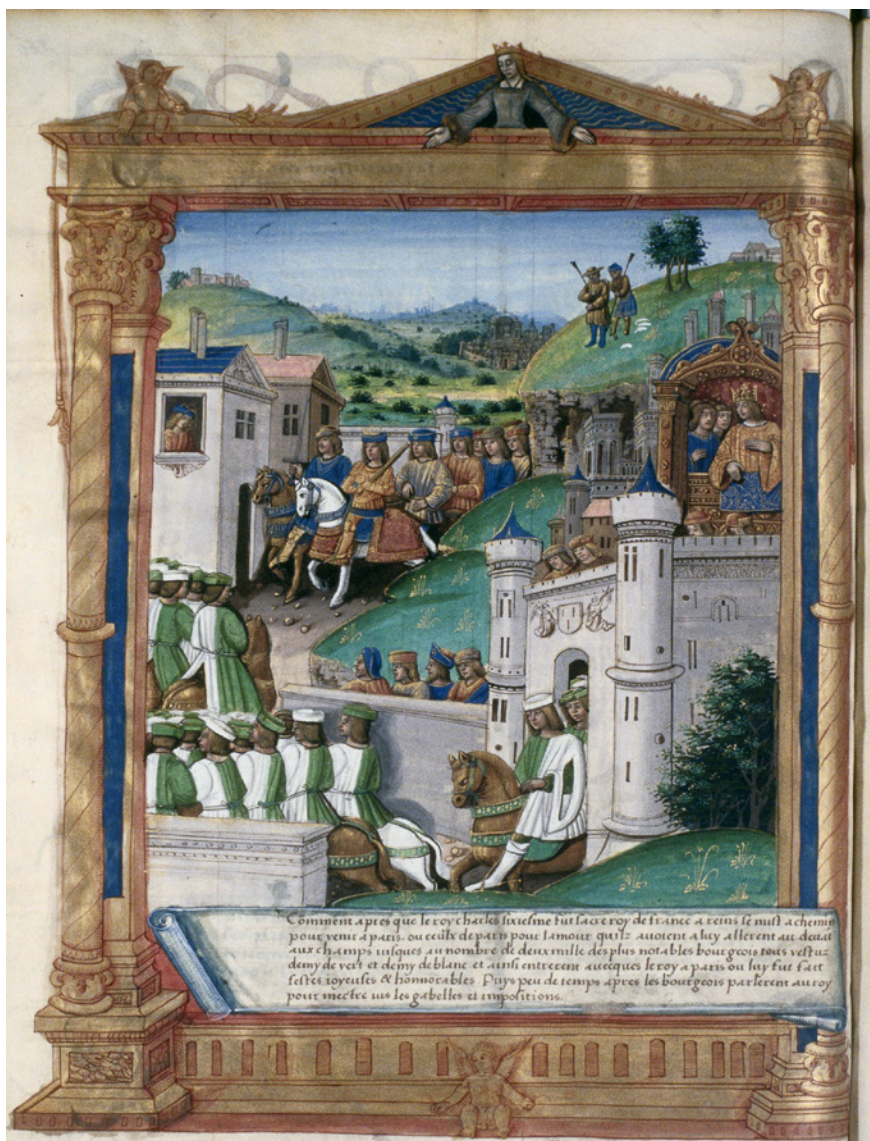 Comment apres que le roy charles sixiesme fut sacre roy de france a reins se mist a chemin
pour venir a paris. ou ceulx de paris pour lamour quilz avoient a luy allerent au devãt
aux champs iusques au nombre de deux mille des plus notables bourgeois tous vestuz
demy de vert et demy de blanc. et ainsi entrerent avecques le roy a paris ou luy fut fait
festes ioyeuses & honnorables. Puys peu de temps apres les bourgeois parlerent au roy
pour mectre ius les gabelles et impositions.